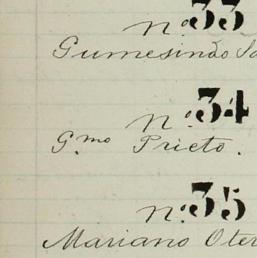 Nº 33
Gumesindo
Nº 34
Gmo Prieto.
Nº 35
Mariano Oter